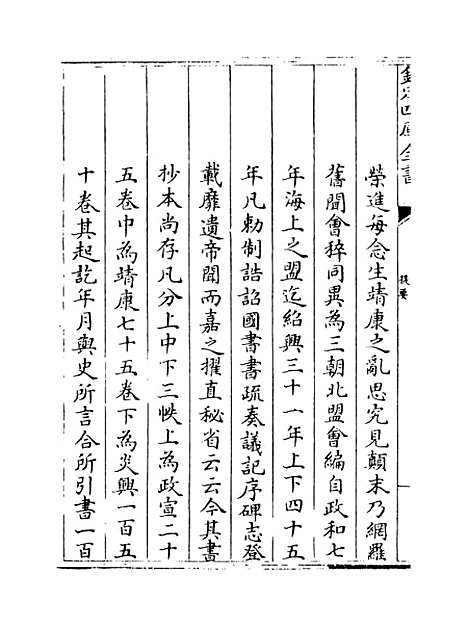 欽定四庫全書
提要
榮進每念生靖康之亂思究見顛末乃網羅
舊聞會稡同異為三朝北盟會編自政和七
年海上之盟迄紹興三十一年上下四十五
年凡勅制誥詔國書書疏奏議記序碑志登
載靡遺帝聞而嘉之擢直秘省云云今其書
抄本尚存凡分上中下三帙上為政宣二十
五卷中為靖康七十五卷下為炎興一百五
十卷其起訖年月與史所言合所引書一百